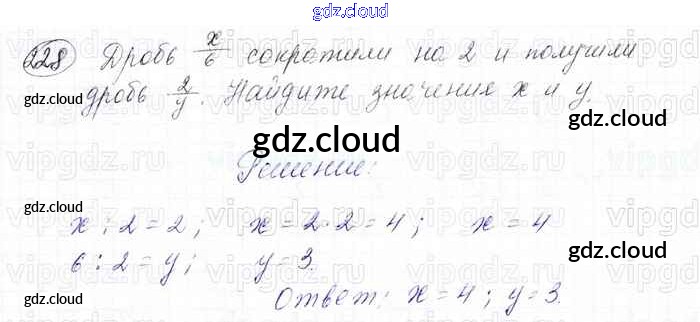 gdz.cloud
228 Дробь x/6 сократили на 2 и получили
дробь 2/y. Найдите значения x и y.
gdz.cloud
gdz.cloud
vipgdz.ru
gdz.cloud
Решение:
gdz.cloud
x : 2 = 2; x = 2 · 2 = 4; x = 4
6 : 2 = y; y = 3.
gdz.cloud
gdz.cloud
Ответ: x = 4; y = 3.